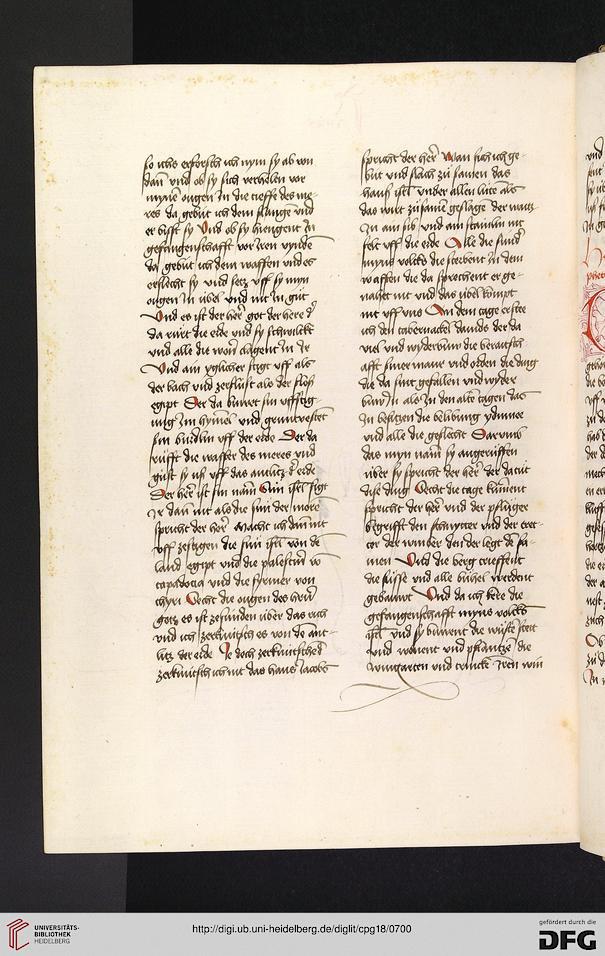 so ichs erforsch ich nym sy ab von
dan vnd ob sy sich verholen vor
mynen ougen In die tieffe des me-
res da gebut ich dem slangen vnd
er bisst sy Vnd ob sy hiengent In
gefangenschafft vor Iren vynden
da gebut ich dem waffen vnd es
erslecht sy vnd setz vff sy myn
ougen In übel vnd nit In güt
Vnd es ist der her got der here
da rürt die erde vnd sy
vnd alle die won clagent In Ir
Vnd am yglicher stigt vff als
der bach vnd zerflüst als der floß
egipt Der da buwet sin vffstig-
ung Im hymel vnd gruntvestet
sin bürdlin vff der erde Der da
rüfft die wasser des meres vnd
güst sy uß vff das antlitz erde
Der her ist sin nam Sun isrl sigt
Ir dan nit als die sün der more
spricht der her Macht ich dan nit
vff zestigen die sün isrl von de
land egipt vnd die palestin vō
capadocia vnd die syrier von
Secht die ougen des herr
gotz es ist zesünden über das rich
vnd ich zerknitsch es von de ant-
litz der erde Je doch zerknitschend
zerknitsch ich nit das haus Jacobs
spricht der her Wan sich ich ge-
büt vnd slach zü samen das
hauß isrl vnder allen lüte als
das wirt zusamē geslagē der waitz
In am sib vnd am stainlin nit
felt vff die erde Alle die sund
myns volcks die sterbent In dem
waffen die da sprechent er ge-
nahet nit vnd das übel kompt
nit vff vns An dem tage erstee
ich den tabernackel dauids der da
viel vnd wyderbuw die
siner maur vnd orden die ding
die da sint gefallen vnd wyder
buw In als In den alte tagen das
In besitzen die belibung ydumee
vnd alle die geslecht Darumb
das myn nam sy angerüffen
über sy spricht der her der da tüt
dise ding Secht die tage kument
spricht der her vnd der pflüger
begrifft den schnytter vnd der tret-
ter der wimber den der legt dē sa-
men Vnd die berg trieffent
die süsse vnd alle bühel werdent
gebawt Vnd da ich kere die
gefangenschafft myns volcks
isrl vnd sy buwent die wüste stett
vnd wonent vnd pflantzē die
wingarten vnd trincke Iren win
UNIVERSITÄTS-
BIBLIOTHEK
HEIDELBERG
http://digi.ub.uni-heidelberg.de/diglit/cpg18/0700
gefördert durch die
DFG